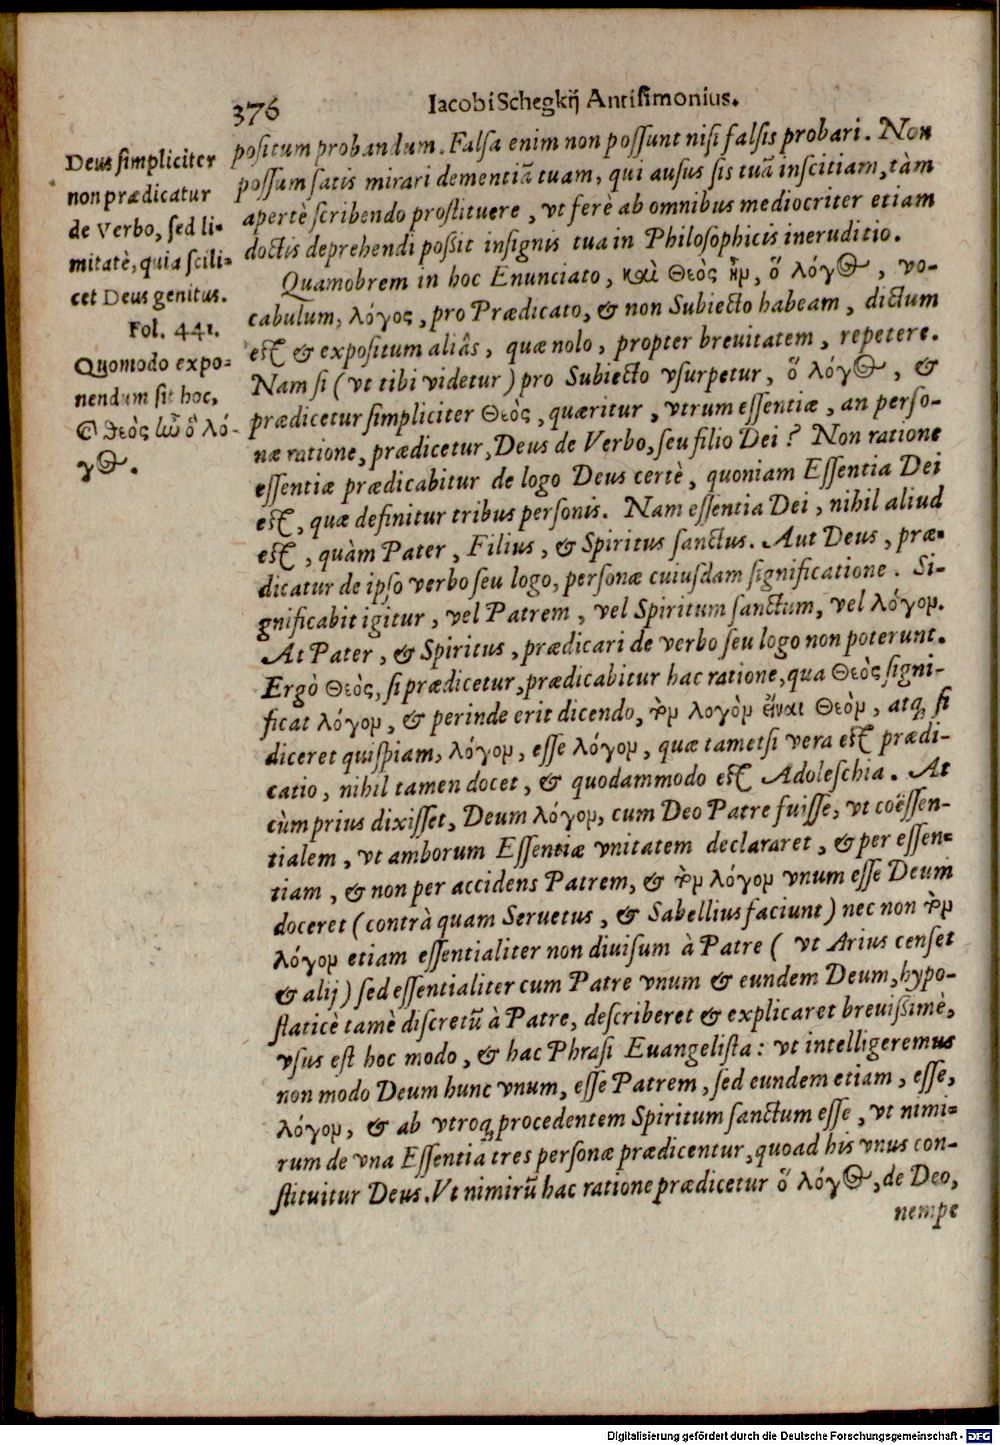 376
Iacobi Schegkij Antisimonius.
Deus simpliciter
non prædicatur
de Verbo, sed li-
mitatè, quia scili-
cet Deus genitus.
Fol. 441.
Quomodo expo-
nendum sit hoc,
θεὸς ὁ λό-
γος.
positum probandum. Falsa enim non possunt nisi falsis probari. Non
possum satis mirari dementiã tuam, qui ausus sis tuã inscitiam, tàm
apertè scribendo prostituere, vt ferè ab omnibus mediocriter etiam
doctis deprehendi poßit insignis tua in Philosophicis ineruditio.
Quamobrem in hoc Enunciato, καὶ Θεὸς ἦν, ὁ λόγος, vo-
cabulum, λόγος, pro Prædicato, & non Subiecto habeam, dictum
est & expositum aliâs, quæ nolo, propter breuitatem, repetere.
Nam si (vt tibi videtur) pro Subiecto vsurpetur, ὁ λόγος, &
prædicetur simpliciter Θεὸς, quæritur, vtrum essentiæ, an perso-
næ ratione, prædicetur, Deus de Verbo, seu filio Dei? Non ratione
essentiæ prædicabitur de logo Deus certè, quoniam Essentia Dei
est, quæ definitur tribus personis. Nam essentia Dei, nihil aliud
est, quàm Pater, Filius, & Spiritus sanctus. Aut Deus, præ-
dicatur de ipso verbo seu logo, personæ cuiusdam significatione. Si-
gnificabit igitur, vel Patrem, vel Spiritum sanctum, vel λόγον.
At Pater, & Spiritus, prædicari de verbo seu logo non poterunt.
Ergò Θεὸς, si prædicetur, prædicabitur hac ratione, qua Θεὸς signi-
ficat λόγον, & perinde erit dicendo, τὸν λογὸν εἶναι Θεὸν, atq; si
diceret quispiam, λόγον, esse λόγον, quæ tametsi vera est prædi-
catio, nihil tamen docet, & quodammodo est Adoleschia. At
cùm prius dixisset, Deum λόγον, cum Deo Patre fuisse, vt coëssen-
tialem, vt amborum Essentiæ vnitatem declararet, & per essen-
tiam, & non per accidens Patrem, & τὸν λόγον vnum esse Deum
doceret (contrà quam Seruetus, & Sabellius faciunt) nec non τὸν
λόγον etiam essentialiter non diuisum à Patre ( vt Arius censet
& alij) sed essentialiter cum Patre vnum & eundem Deum, hypo-
staticè tamẽ discretũ à Patre, describeret & explicaret breuißimè,
vsus est hoc modo, & hac Phrasi Euangelista: vt intelligeremus
non modo Deum hunc vnum, esse Patrem, sed eundem etiam, esse,
λόγον, & ab vtroq; procedentem Spiritum sanctum esse, vt nimi-
rum de vna Essentia tres personæ prædicentur, quoad his vnus con-
stituitur Deus. Vt nimirũ hac ratione prædicetur ὁ λόγος, de Deo,
nempe
Digitalisierung gefördert durch die Deutsche Forschungsgemeinschaft - DFG